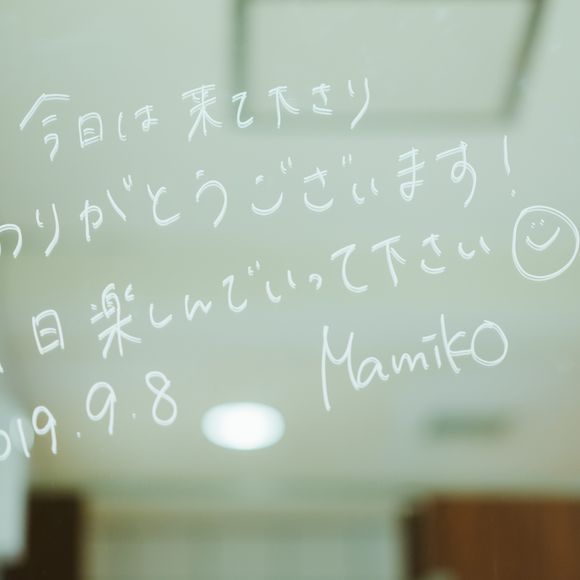 今日は来て下さり
ありがとうございます!
1日楽しんでいって下さい
2019.9.8
Mamiko